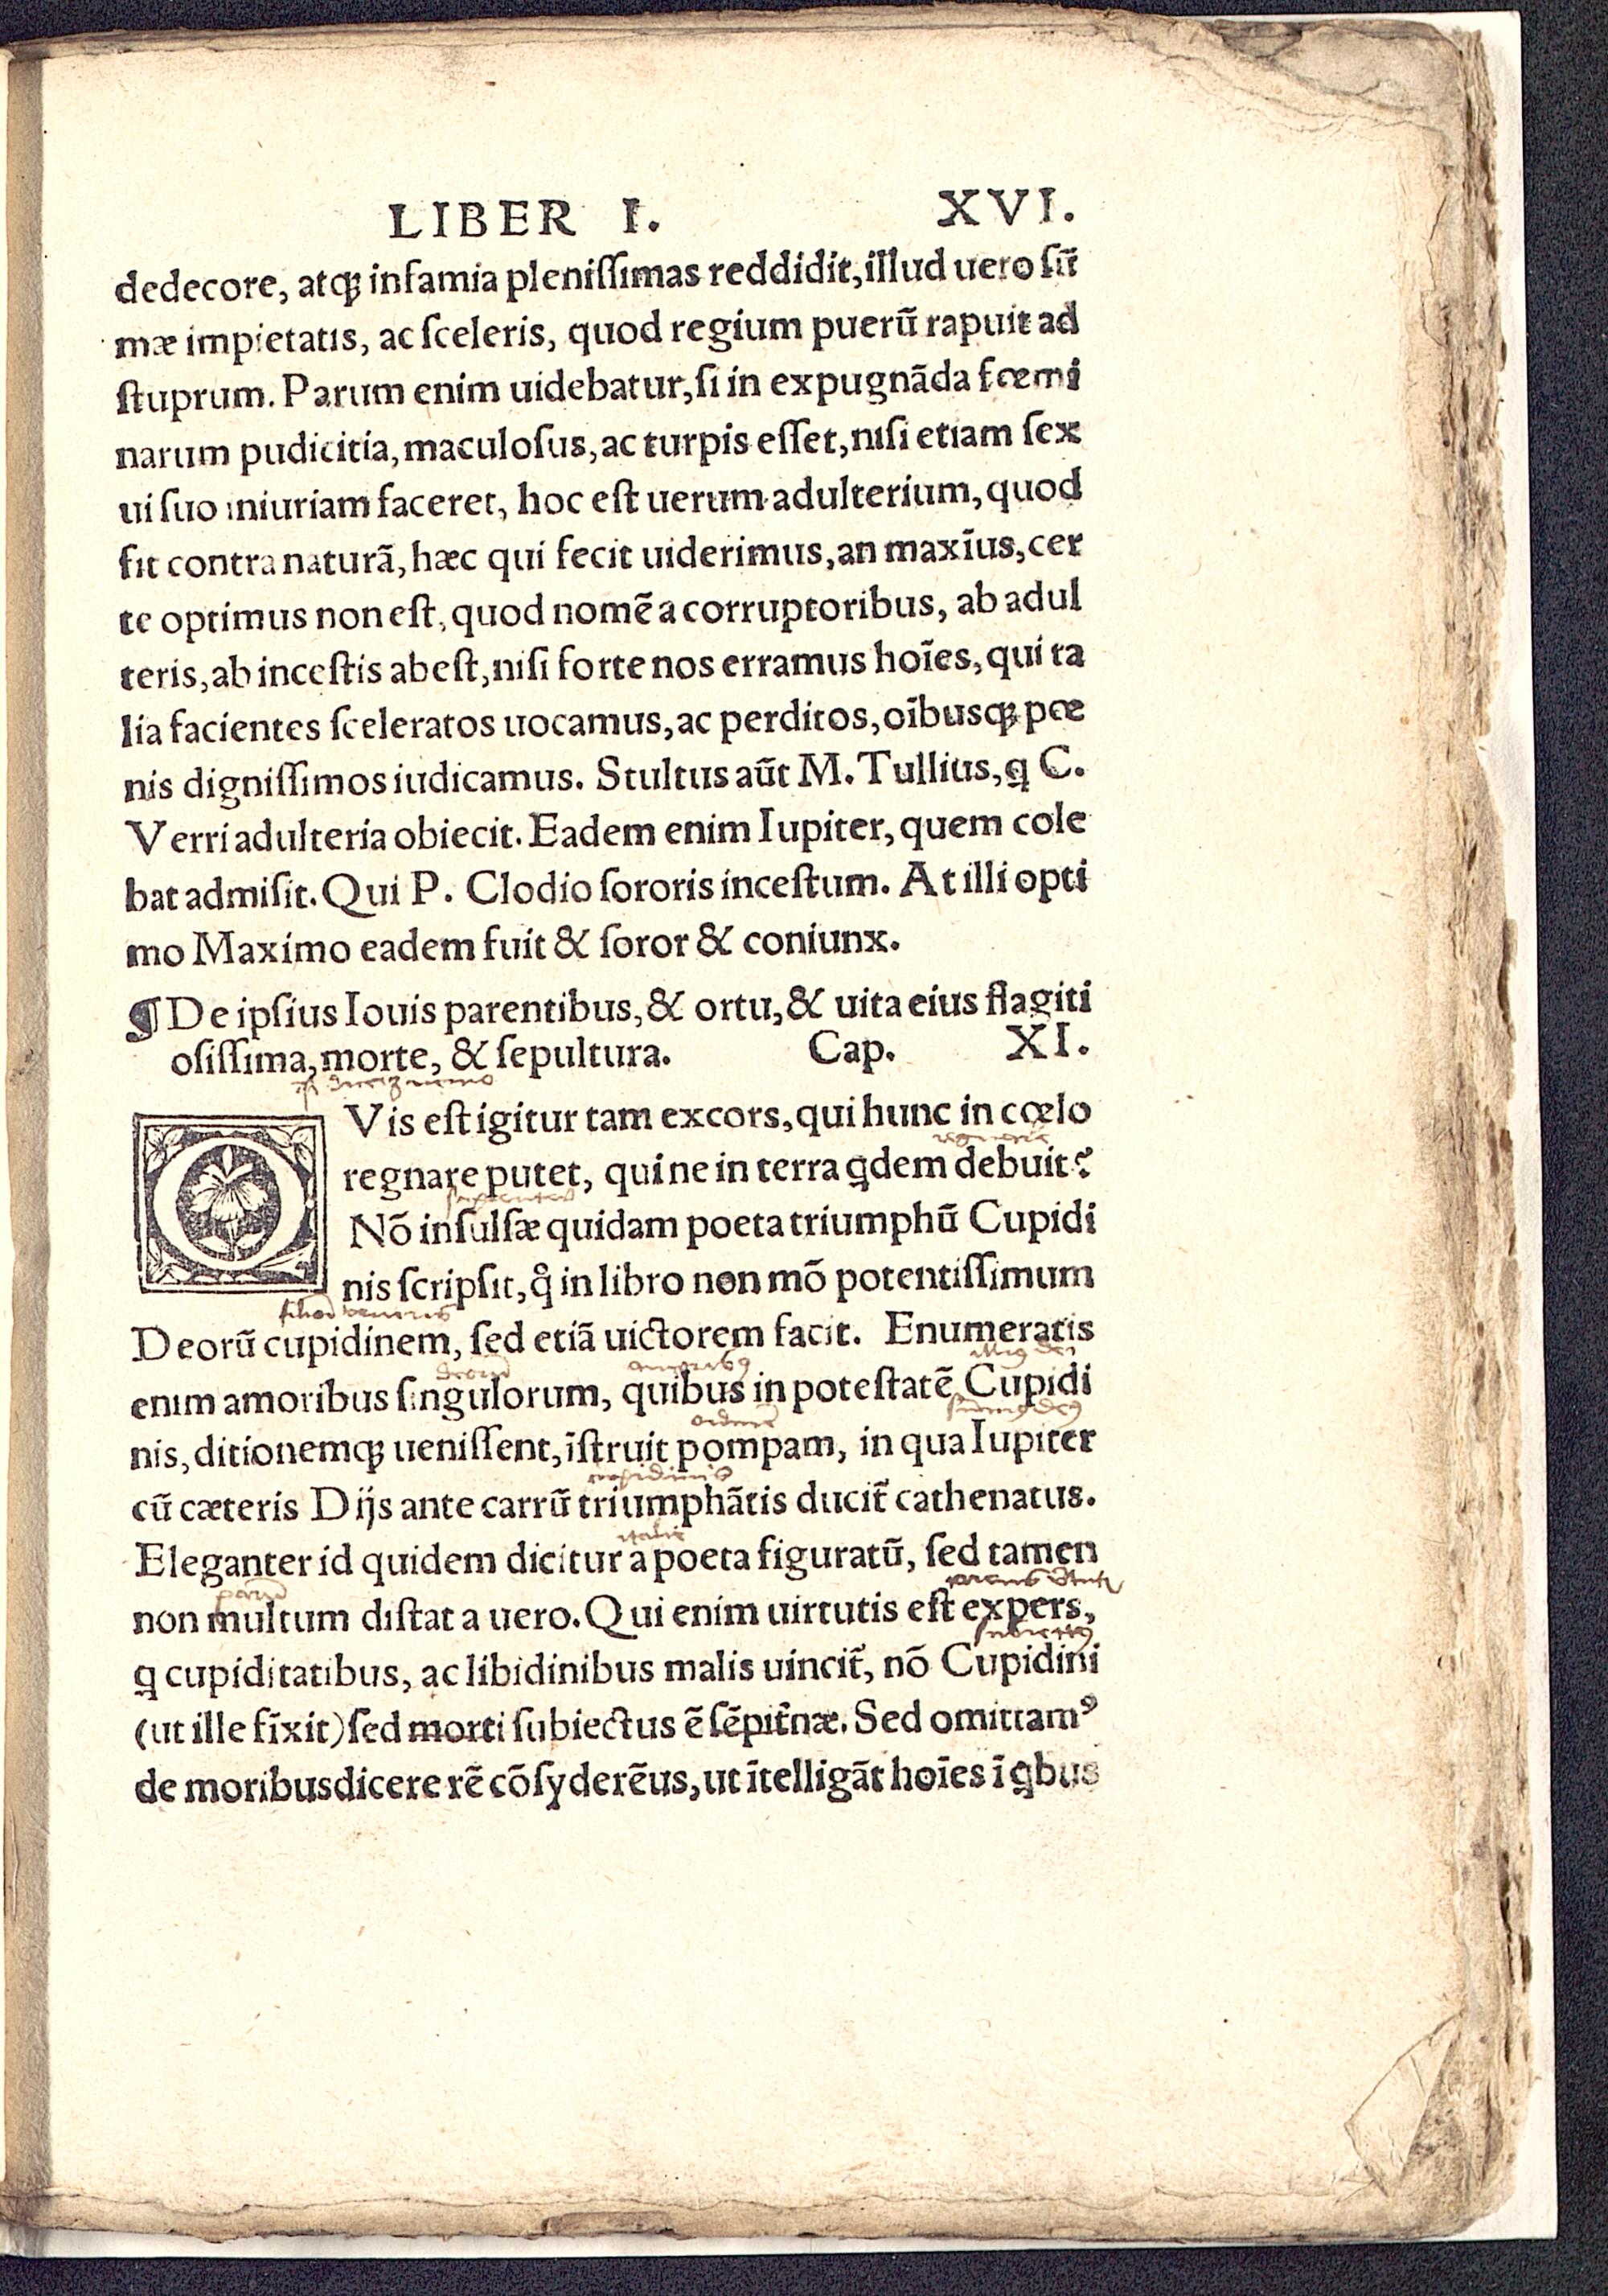 LIBER I. XVI.
dedecore, atqꝫ infamia pleniſſimas reddidit, illud uero ſū
mæ impietatis, ac ſceleris, quod regium puerū rapuit ad
ſtuprum. Parum enim uidebatur, ſi in expugnāda fœmi
narum pudicitia, maculoſus, ac turpis eſſet, niſi etiam ſex
ui ſuo iniuriam faceret, hoc eſt uerum adulterium, quod
fit contra naturā, hæc qui fecit uiderimus, an maxīus, cer
te optimus non eſt, quod nomē a corruptoribus, ab adul
teris, ab inceſtis abeſt, niſi forte nos erramus hoīes, qui ta
lia facientes ſceleratos uocamus, ac perditos, oībusqꝫ pœ
nis digniſſimos iudicamus. Stultus aūt M. Tullius, ꝗ C.
Verri adulteria obiecit. Eadem enim Iupiter, quem cole
bat admiſit. Qui P. Clodio ſororis inceſtum. At illi opti
mo Maximo eadem fuit & ſoror & coniunx.
¶ De ipſius Iouis parentibus, & ortu, & uita eius flagiti
oſiſſima, morte, & ſepultura. Cap. XI.
QVis eſt igitur tam excors, qui hunc in cœlo
regnare putet, qui ne in terra ꝗdem debuit?
Nō inſulſæ quidam poeta triumphū Cupidi
nis ſcripſit, q̊ in libro non mō potentiſſimum
filiū veneris
Deorū cupidinem, ſed etiā uictorem facit. Enumeratis
deorū amoribꝰ
enim amoribus ſingulorum, quibus in poteſtatē Cupidi
nis, ditionemqꝫ ueniſſent, īſtruit pompam, in qua Iupiter
cupidinis
cū cæteris Dijs ante carrū triumphātis ducit᷑ cathenatus.
Eleganter id quidem dicitur a poeta figuratū, ſed tamen
non multum diſtat a uero. Qui enim uirtutis eſt expers,
ꝗ cupiditatibus, ac libidinibus malis uincit᷑, nō Cupidini
(ut ille fīxit) ſed morti ſubiectus ē ſēpit᷑næ. Sed omittamꝰ
de moribusdicere rē cōſyderēus, ut ītelligāt hoīes ī ꝗbus